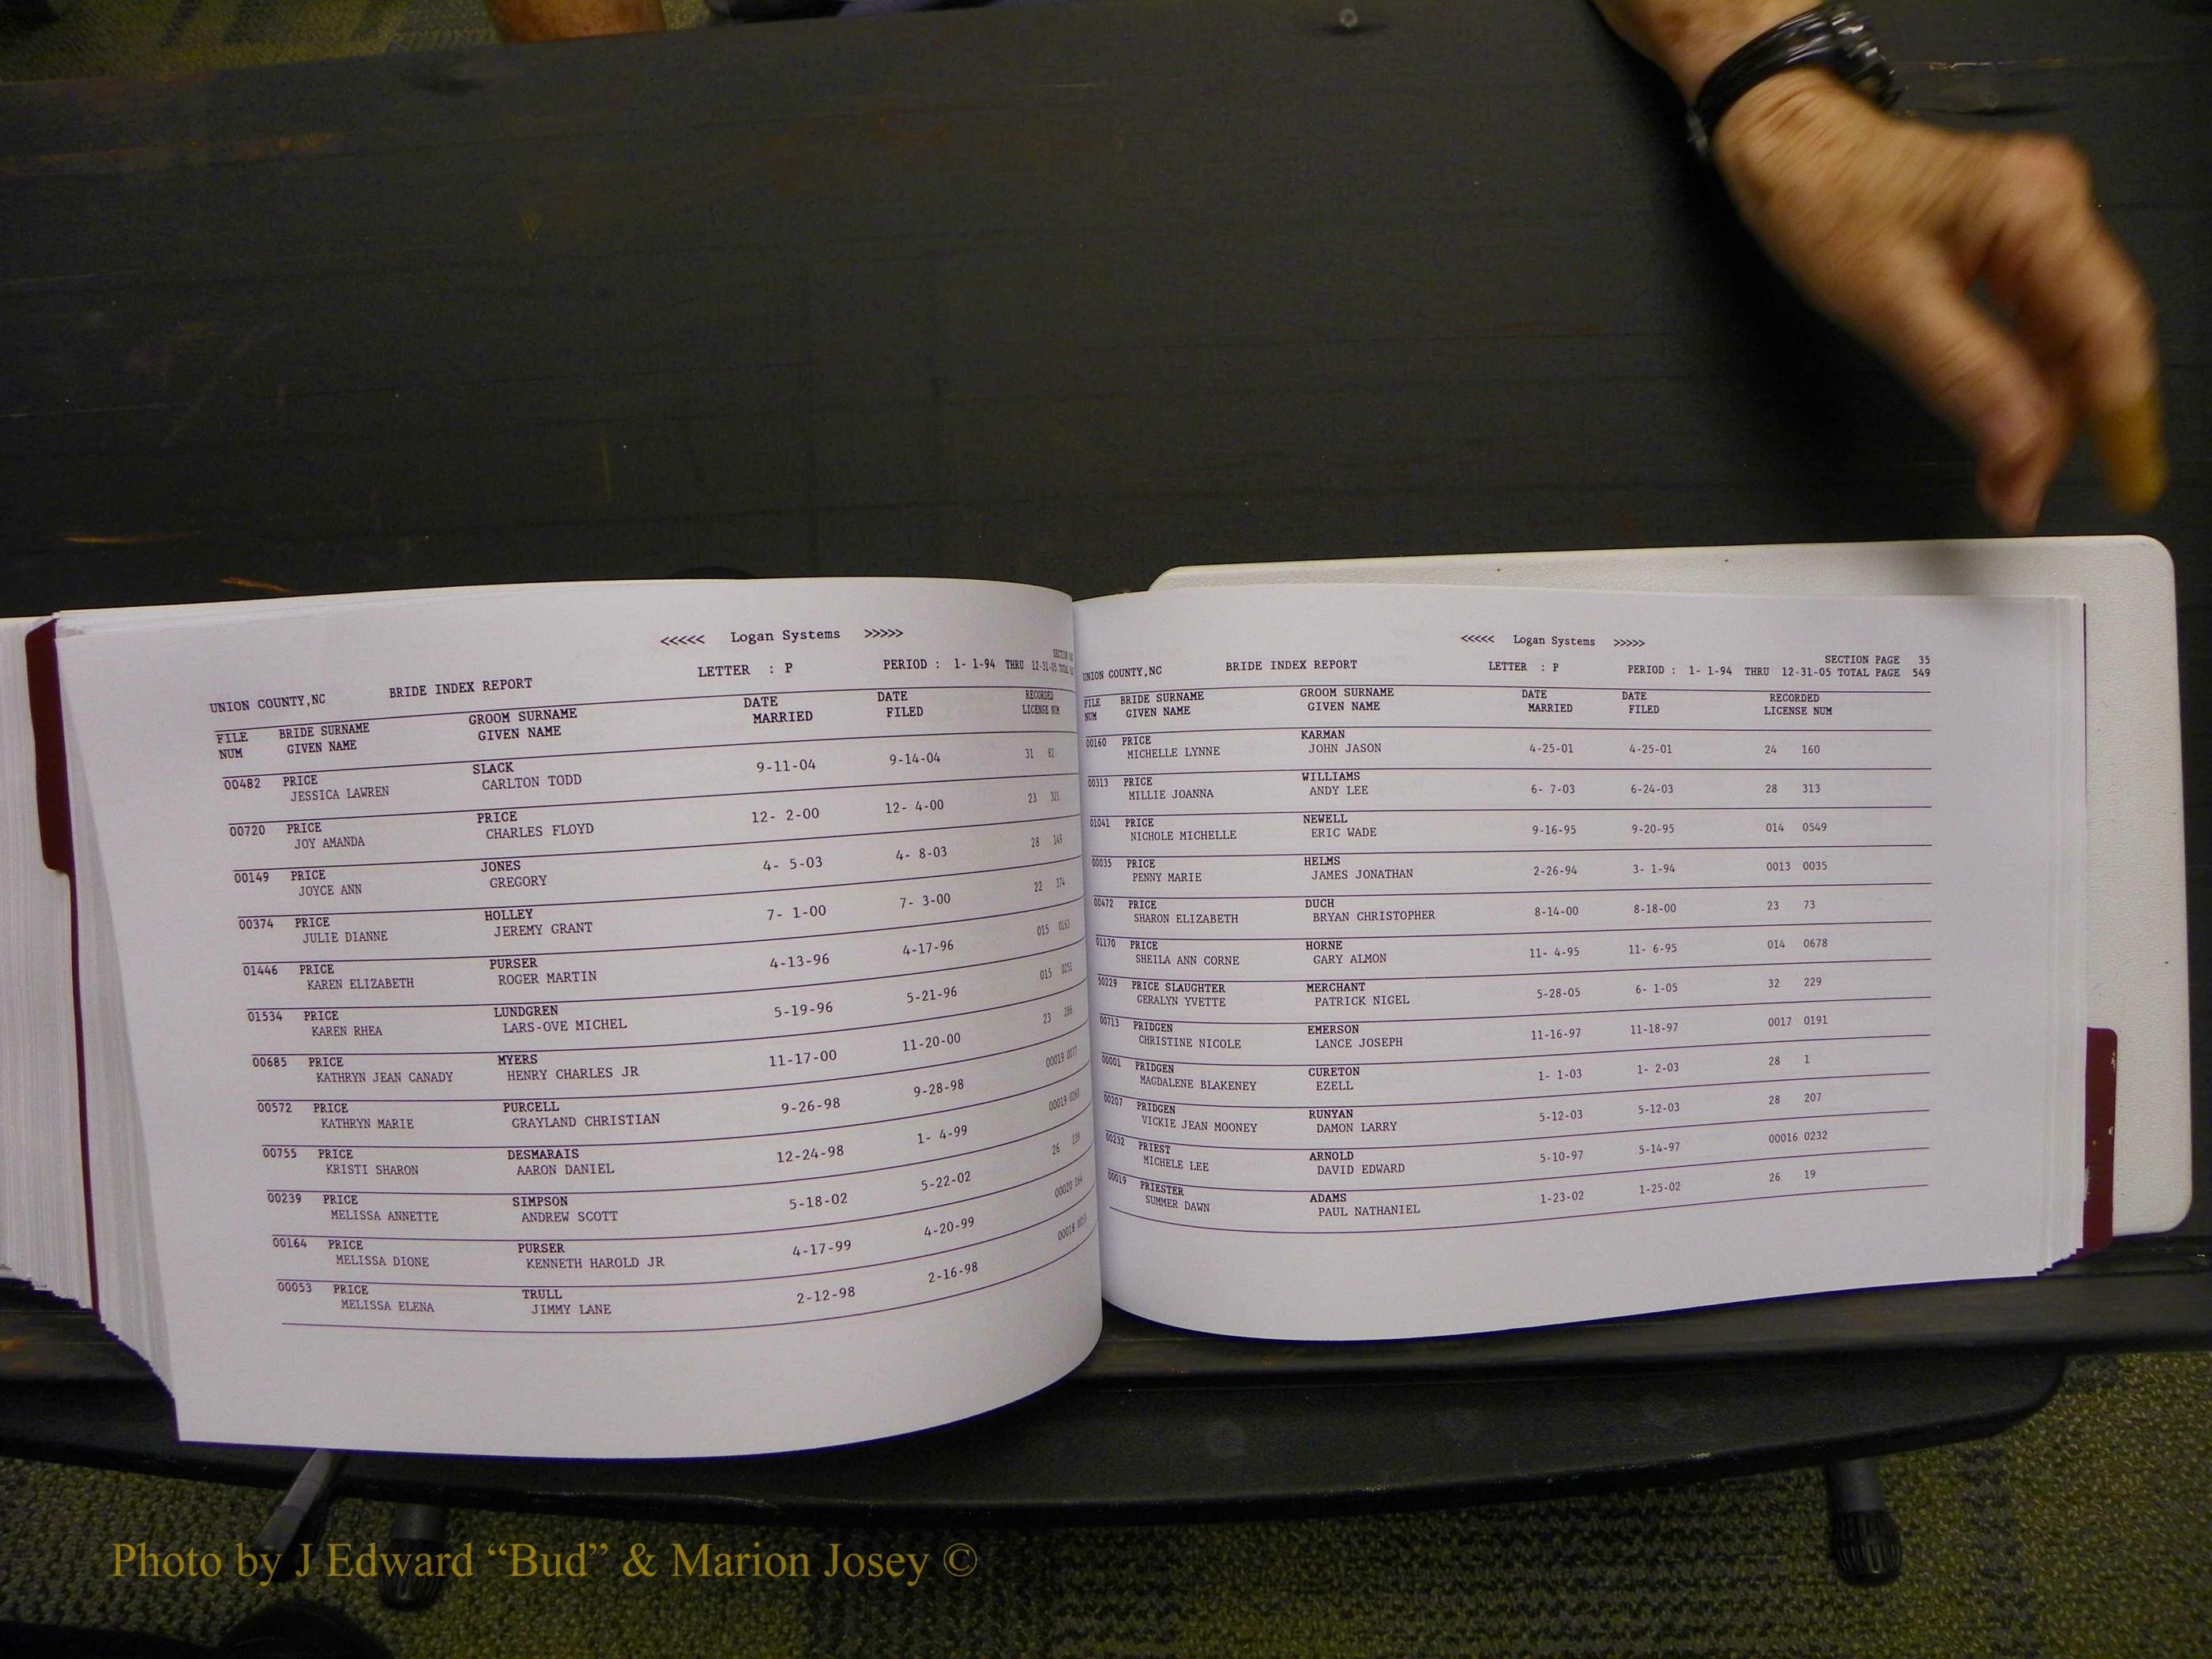 <<<<< Logan Systems >>>>>
UNION COUNTY,NC BRIDE INDEX REPORT LETTER : P PERIOD : 1- 1-94 THRU 12-31-05
FILE BRIDE SURNAME GROOM SURNAME DATE DATE RECORDED
NUM GIVEN NAME GIVEN NAME MARRIED FILED LICENSE NUM
00482 PRICE SLACK 9-11-04 9-14-04 31 82
JESSICA LAWREN CARLTON TODD
00720 PRICE PRICE 12- 2-00 12- 4-00 23 321
JOY AMANDA CHARLES FLOYD
00149 PRICE JONES 4- 5-03 4- 8-03 28 149
JOYCE ANN GREGORY
00374 PRICE HOLLEY 7- 1-00 7- 3-00 22 374
JULIE DIANNE JEREMY GRANT
01446 PRICE PURSER 4-13-96 4-17-96 015 0163
KAREN ELIZABETH ROGER MARTIN
01534 PRICE LUNDGREN 5-19-96 5-21-96 015
KAREN RHEA LARS-OVE MICHEL
00685 PRICE MYERS 11-17-00 11-20-00 23 286
KATHRYN JEAN CANADY HENRY CHARLES JR
00572 PRICE PURCELL 9-26-98 9-28-98 00019
KATHRYN MARIE GRAYLAND CHRISTIAN
00755 PRICE DESMARAIS 12-24-98 1- 4-99 00019
KRISTI SHARON AARON DANIEL
00239 PRICE SIMPSON 5-18-02 5-22-02 26
MELISSA ANNETTE ANDREW SCOTT
00164 PRICE PURSER 4-17-99 4-20-99 00020 164
MELISSA DIONE KENNETH HAROLD JR
00053 PRICE TRULL 2-12-98 2-16-98 00018 0053
MELISSA ELENA JIMMY LANE
<<<<< Logan Systems >>>>>
SECTION PAGE 35
UNION COUNTY,NC BRIDE INDEX REPORT LETTER : P PERIOD : 1- 1-94 THRU 12-31-05 TOTAL PAGE 549
FILE BRIDE SURNAME GROOM SURNAME DATE DATE RECORDED
NUM GIVEN NAME GIVEN NAME MARRIED FILED LICENSE NUM
00160 PRICE KARMAN 4-25-01 4-25-01 24 160
MICHELLE LYNNE JOHN JASON
00313 PRICE WILLIAMS 6- 7-03 6-24-03 28 313
MILLIE JOANNA ANDY LEE
01041 PRICE NEWELL 9-16-95 9-20-95 014 0549
NICHOLE MICHELLE ERIC WADE
00035 PRICE HELMS 2-26-94 3- 1-94 0013 0035
PENNY MARIE JAMES JONATHAN
00472 PRICE DUCH 8-14-00 8-18-00 23 73
SHARON ELIZABETH BRYAN CHRISTOPHER
01170 PRICE HORNE 11- 4-95 11- 6-95 014 0678
SHEILA ANN CORNE GARY ALMON
50229 PRICE SLAUGHTER MERCHANT 5-28-05 6- 1-05 32 229
GERALYN YVETTE PATRICK NIGEL
00713 PRIDGEN EMERSON 11-16-97 11-18-97 0017 0191
CHRISTINE NICOLE LANCE JOSEPH
00001 PRIDGEN CURETON 1- 1-03 1- 2-03 28 1
MAGDALENE BLAKENEY EZELL
00207 PRIDGEN RUNYAN 5-12-03 5-12-03 28 207
VICKIE JEAN MOONEY DAMON LARRY
00232 PRIEST ARNOLD 5-10-97 5-14-97 00016 0232
MICHELE LEE DAVID EDWARD
00019 PRIESTER ADAMS 1-23-02 1-25-02 26 19
SUMMER DAWN PAUL NATHANIEL
Photo by J Edward “Bud” & Marion Josey ©